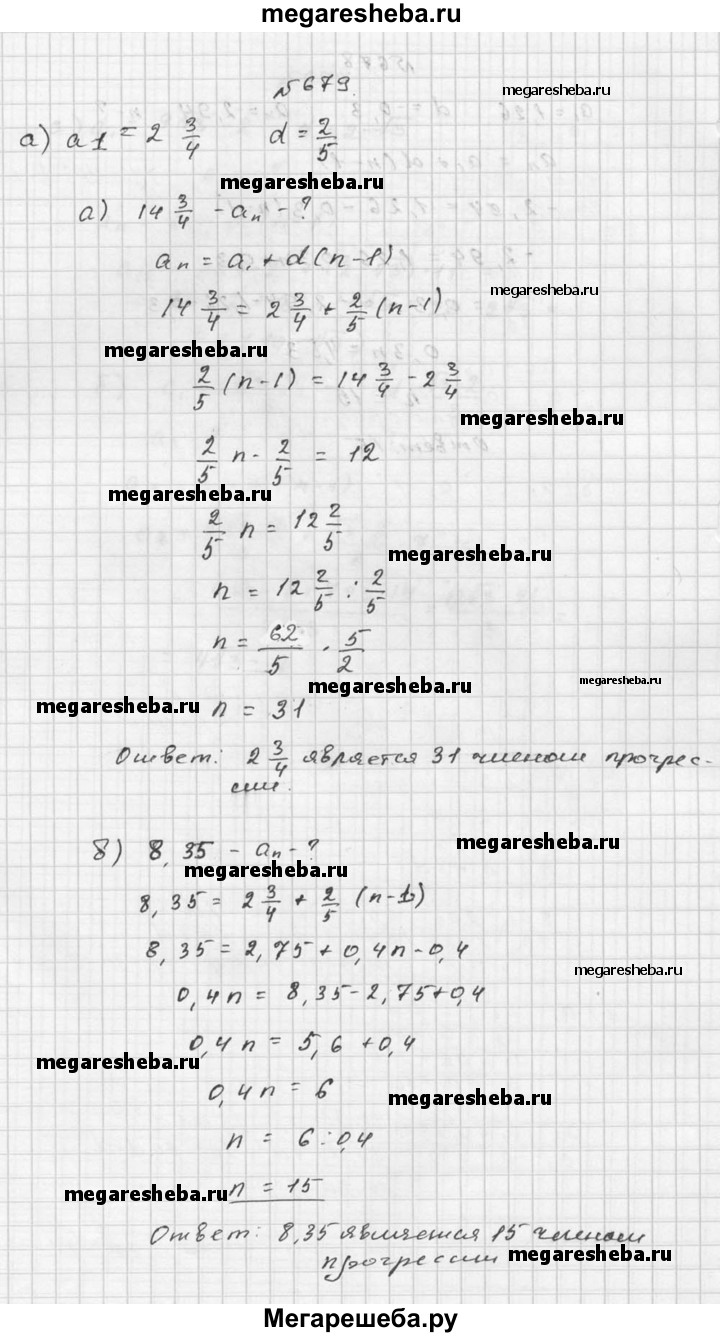 megaresheba.ru
№679.
megaresheba.ru
а) a1 = 2 3/4 d = 2/5
megaresheba.ru
а) 14 3/4 - an - ?
an = a1 + d(n-1)
megaresheba.ru
14 3/4 = 2 3/4 + 2/5 (n-1)
megaresheba.ru
2/5 (n-1) = 14 3/4 - 2 3/4
megaresheba.ru
2/5 n - 2/5 = 12
megaresheba.ru
2/5 n = 12 2/5
megaresheba.ru
n = 12 2/5 : 2/5
n = 62/5 · 5/2
megaresheba.ru
megaresheba.ru
megaresheba.ru
n = 31
Ответ: 2 3/4 является 31 членом прогрес-
сии.
б) 8,35 - an - ?
megaresheba.ru
megaresheba.ru
8,35 = 2 3/4 + 2/5 (n-1)
8,35 = 2,75 + 0,4n - 0,4
megaresheba.ru
0,4n = 8,35 - 2,75 + 0,4
0,4n = 5,6 + 0,4
megaresheba.ru
0,4n = 6
megaresheba.ru
n = 6 : 0,4
megaresheba.ru
n = 15
Ответ: 8,35 является 15 членом
прогрессии
megaresheba.ru
Мегарешеба.ру